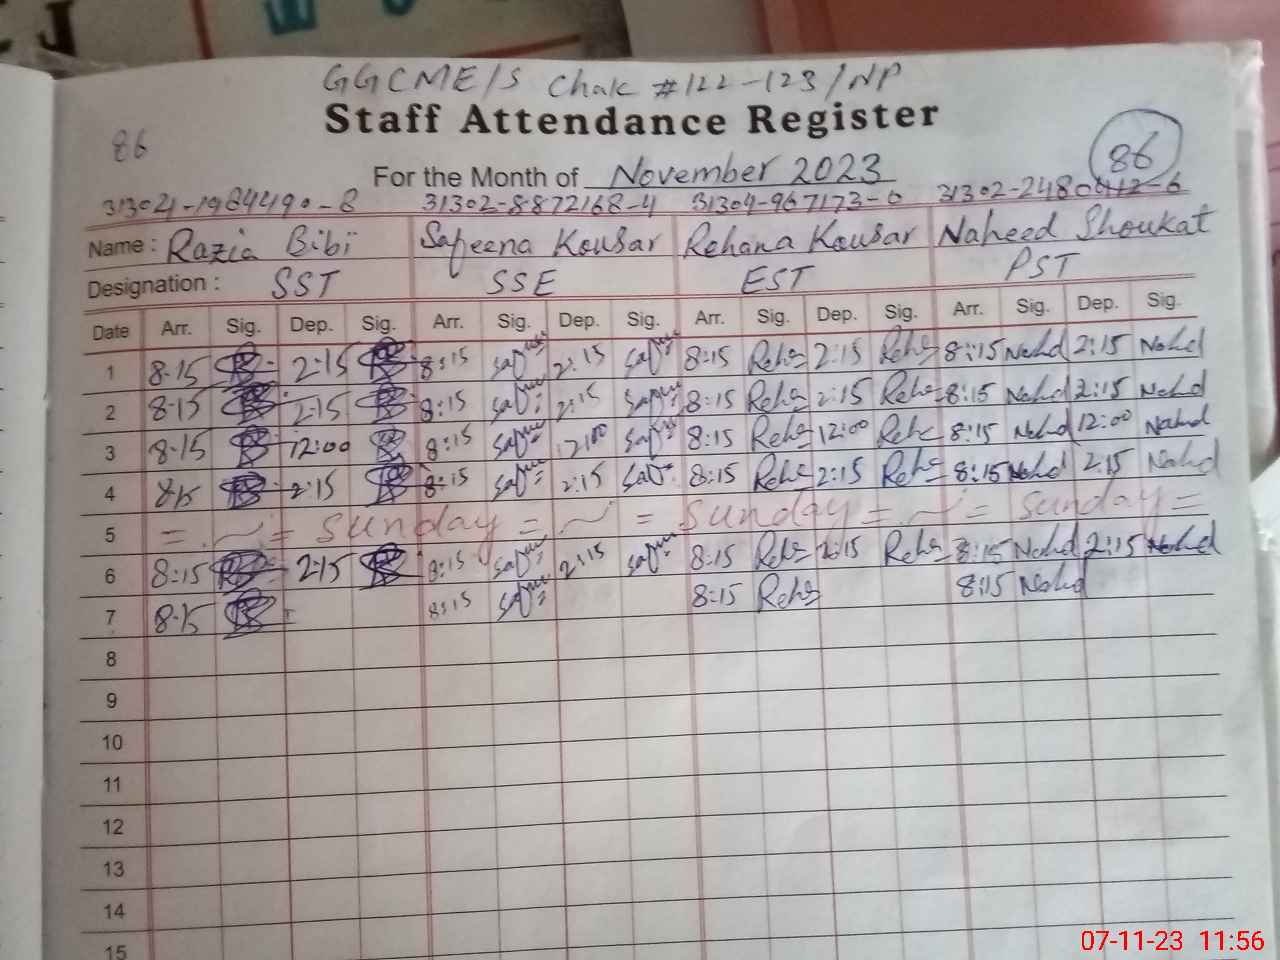 J
GGCME/S Chak #122-123/NP
Staff Attendance Register
86
86
For the Month of November 2023
31304-1984490-8 31302-8872168-4 31304-967173-0 31302-2480412-6
Name : Razia Bibi Safeena Kousar Rehana Kousar Naheed Shoukat
Designation : SST SSE EST PST
Date Arr. Sig. Dep. Sig. Arr. Sig. Dep. Sig. Arr. Sig. Dep. Sig. Arr. Sig. Dep. Sig.
1 8-15 2:15 8:15 2:15 8:15 Rehs 2:15 Rehs 8:15 Nahd 2:15 Nahd
2 8-15 2:15 8:15 2:15 8:15 Rehs 2:15 Rehs 8:15 Nahd 2:15 Nahd
3 8-15 12:00 8:15 12:00 8:15 Rehs 12:00 Rehs 8:15 Nahd 12:00 Nahd
4 8-15 2:15 8:15 2:15 8:15 Rehs 2:15 Rehs 8:15 Nahd 2:15 Nahd
5 = ~ = sunday = ~ = sunday = ~ = sunday =
6 8:15 2:15 8:15 2:15 8:15 Rehs 2:15 Rehs 8:15 Nahd 2:15 Nahd
7 8-15 8:15 8:15 Rehs 8:15 Nahd
8
9
10
11
12
13
14
15
07-11-23 11:56